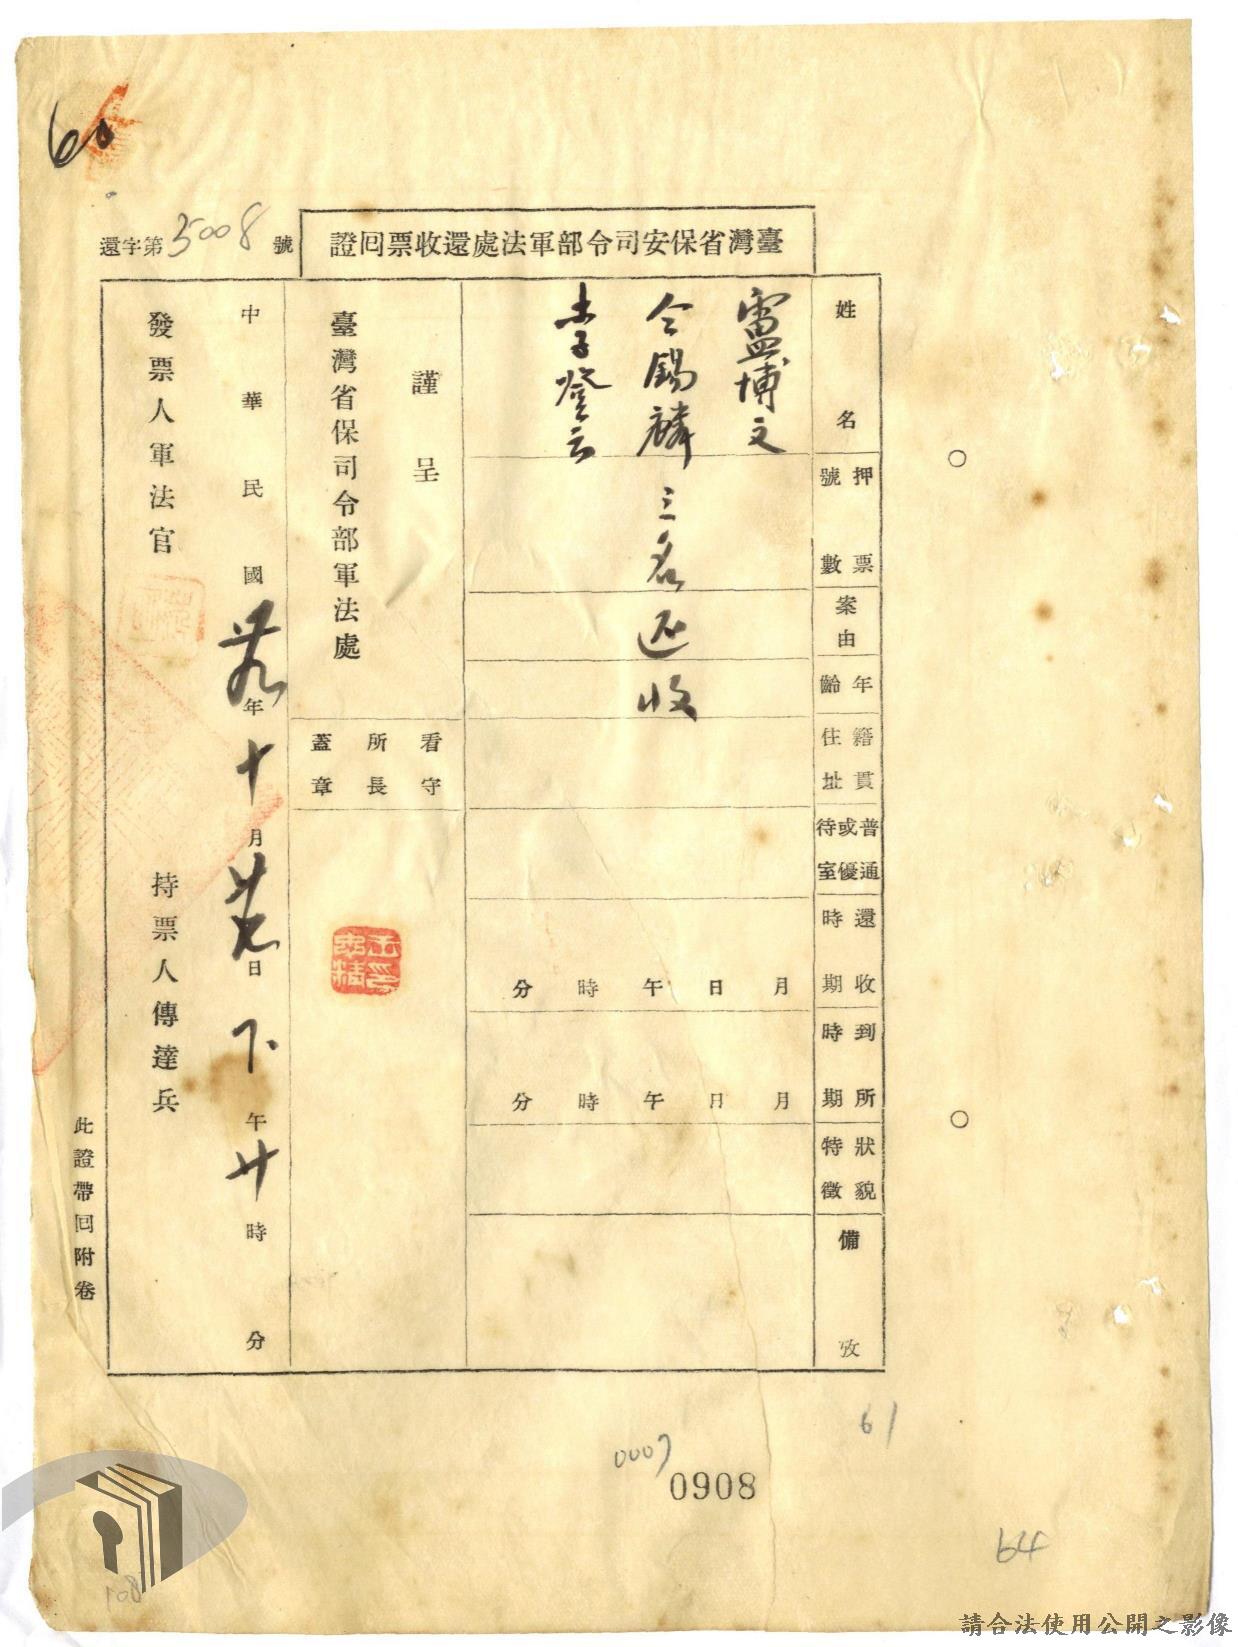 60
臺灣省保安司令部軍法處還收票回證
還字第5008號
姓名
押票號數
案由
年齡
籍貫住址
普通或優待室
還收時期
到所時期
狀貌特徵
備攷
盧博文
仝錫麟三名還收
李登云
月日午時分
月日午時分
謹呈
臺灣省保司令部軍法處
看守所長蓋章
中華民國卅九年十月廿九日下午廿時分
發票人軍法官
持票人傳達兵
此證帶回附卷
61
0007
0908
64
108
請合法使用公開之影像